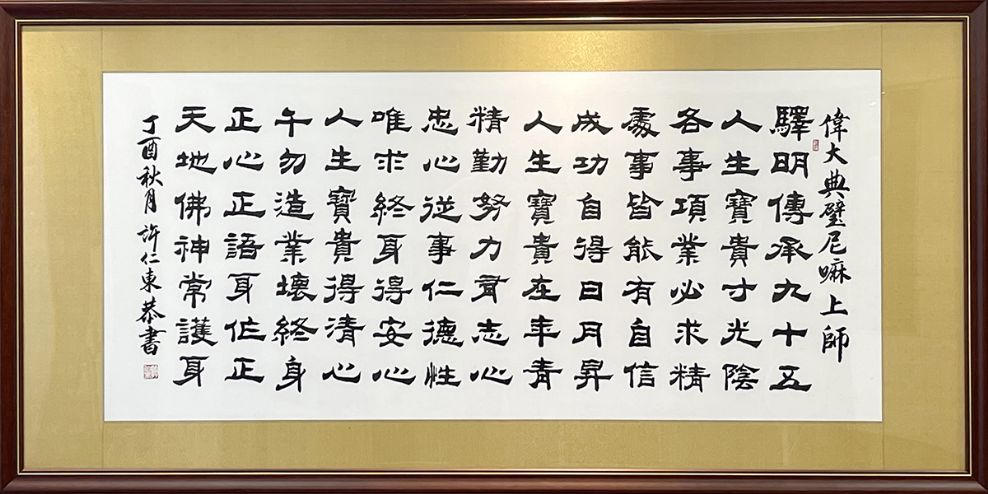 偉大典璧尼嘛上師
驛明傳承九十五
人生寶貴寸光陰
各事項業必求精
處事皆能有自信
成功自得日月昇
人生寶貴在年青
精勤努力有志心
忠心從事仁德性
唯求終身得安心
人生寶貴得清心
午勿造業壞終身
正心正語身作正
天地佛神常護身
丁酉秋月 許仁東恭書